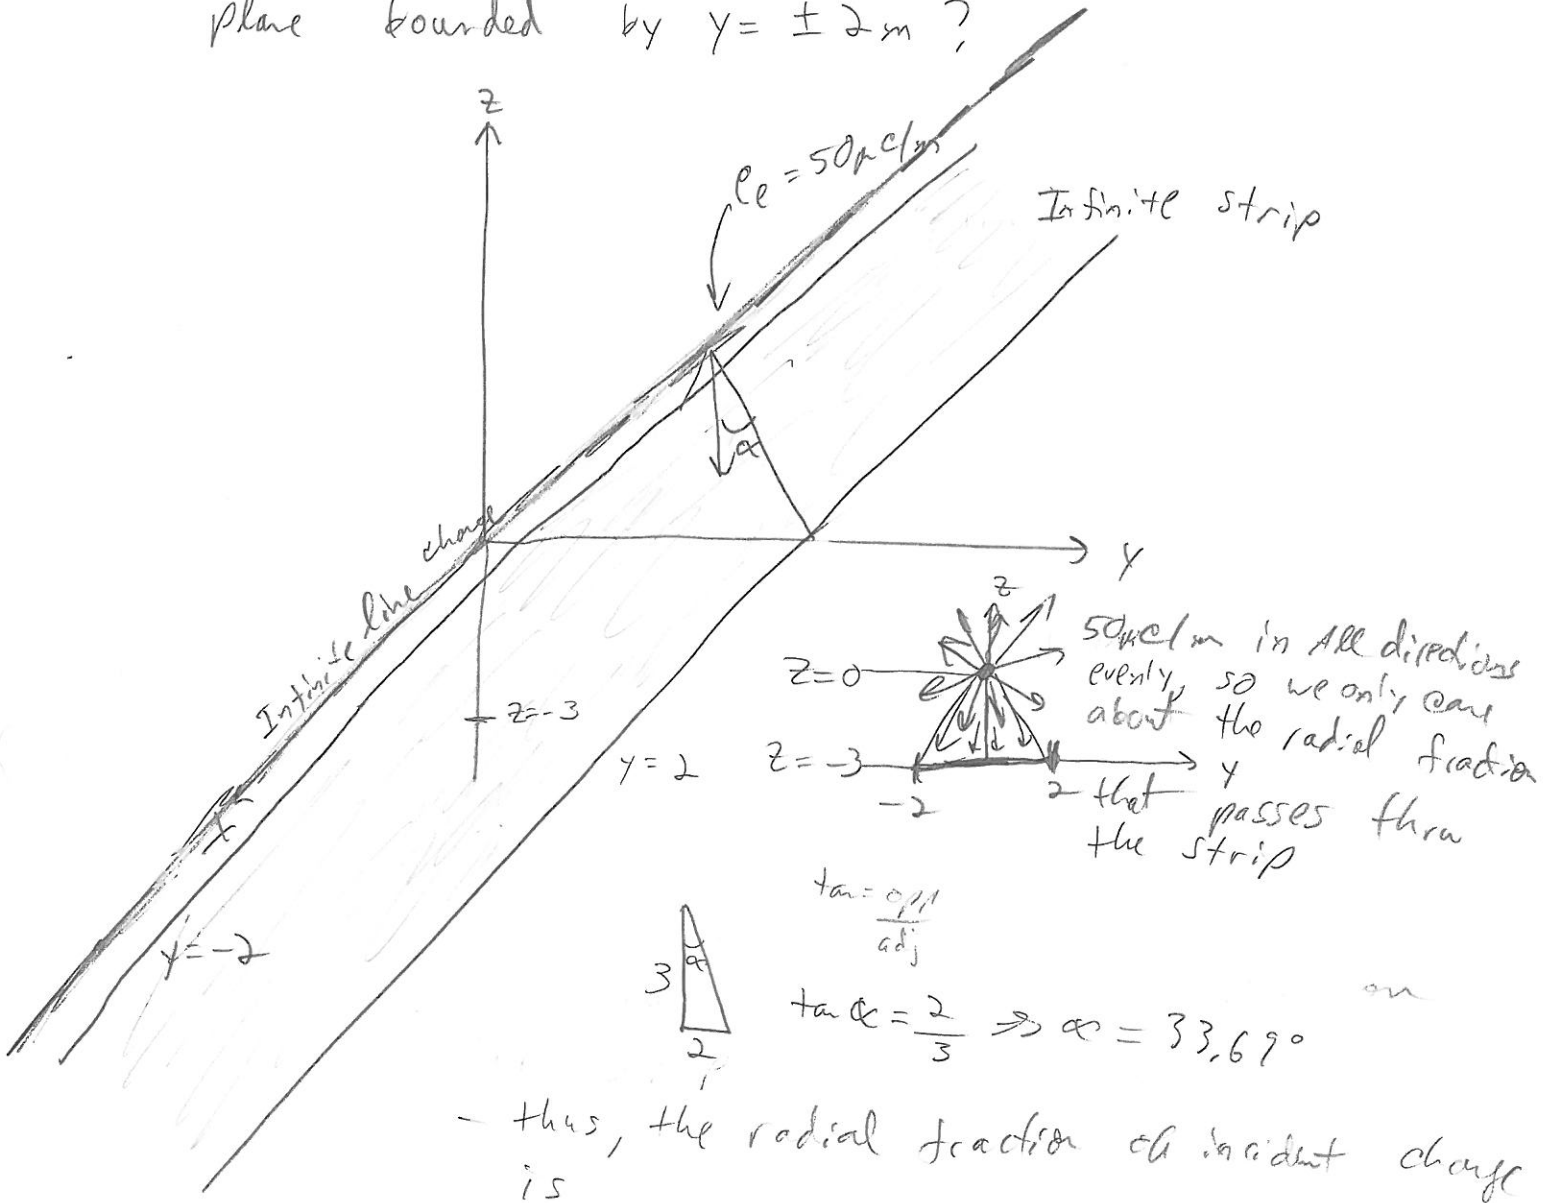 plane bounded by y = ± 2m ?
z
ρℓ = 50μC/m
Infinite strip
α
Infinite line charge
y
z = -3
x
y = 2
y = -2
z
z = 0
z = -3
-2
2
y
50μC/m in All directions
evenly, so we only care
about the radial fraction
that passes thru
the strip
tan = opp/adj
3
α
2
tan α = 2/3 ⇒ α = 33.69°
- thus, the radial fraction of incident charge
is